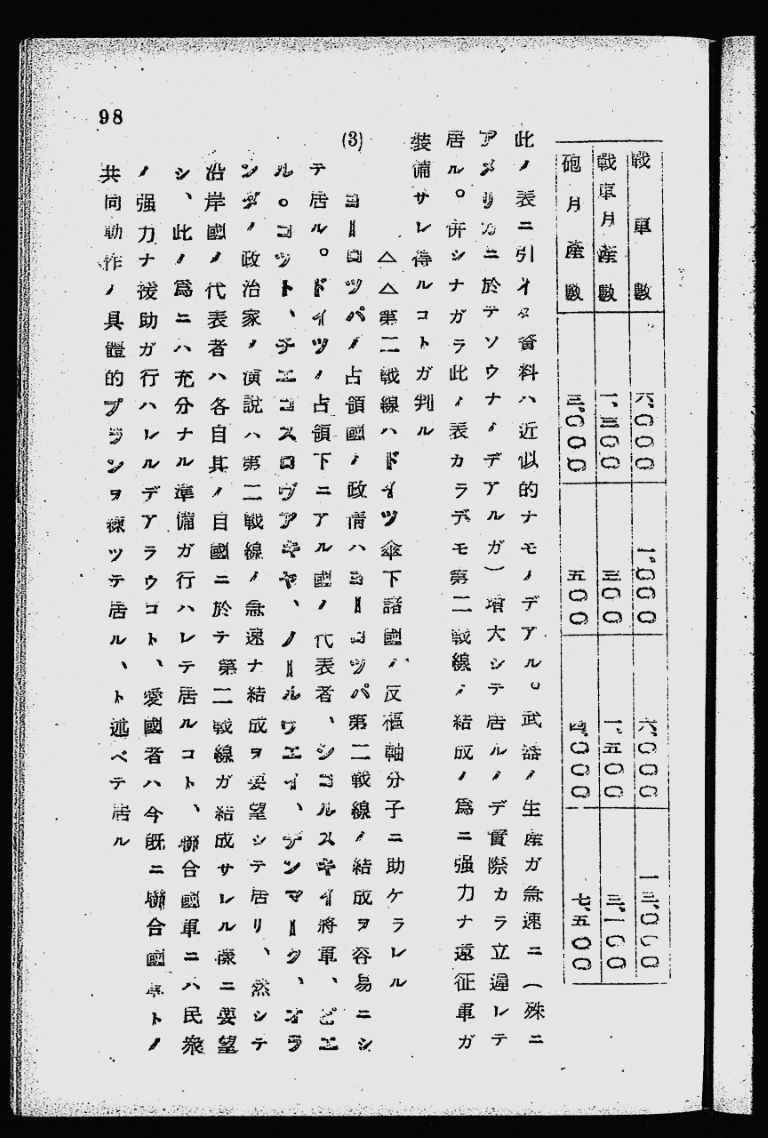 戰車數 六、〇〇〇 一、〇〇〇 六、〇〇〇 一三、〇〇〇
戰車月產數 一、三〇〇 三〇〇 一、五〇〇 三、一〇〇
砲月產數 三、〇〇〇 五〇〇 四、〇〇〇 七、五〇〇
此ノ表ニ引イタ資料ハ近似的ナモノデアル。武器ノ生產ガ急速ニ(殊ニ
アメリカニ於テソウナノデアルガ)增大シテ居ルノデ實際カラ立遲レテ
居ル。併シナガラ此ノ表カラデモ第二戰線ノ結成ノ爲ニ强力ナ遠征軍ガ
裝備サレ得ルコトガ判ル
(3) △△第二戰線ハドイツ傘下諸國ノ反樞軸分子ニ助ケラレル
ヨーロツパノ占領國ノ政情ハヨーロツパ第二戰線ノ結成ヲ容易ニシ
テ居ル。ドイツノ占領下ニアル國ノ代表者、シコルスキイ將軍、ピエ
ル。コツト、チエコスロヴアキヤ、ノールウエイ、デンマーク、オラ
ンダノ政治家ノ演說ハ第二戰線ノ急速ナ結成ヲ要望シテ居リ、然シテ
沿岸國ノ代表者ハ各自其ノ自國ニ於テ第二戰線ガ結成サレル樣ニ要望
シ、此ノ爲ニハ充分ナル準備ガ行ハレテ居ルコト、聯合國軍ニハ民衆
ノ强力ナ援助ガ行ハレルデアラウコト、愛國者ハ今旣ニ聯合國軍トノ
共同動作ノ具體的プランヲ練ツテ居ル、ト述ベテ居ル
98